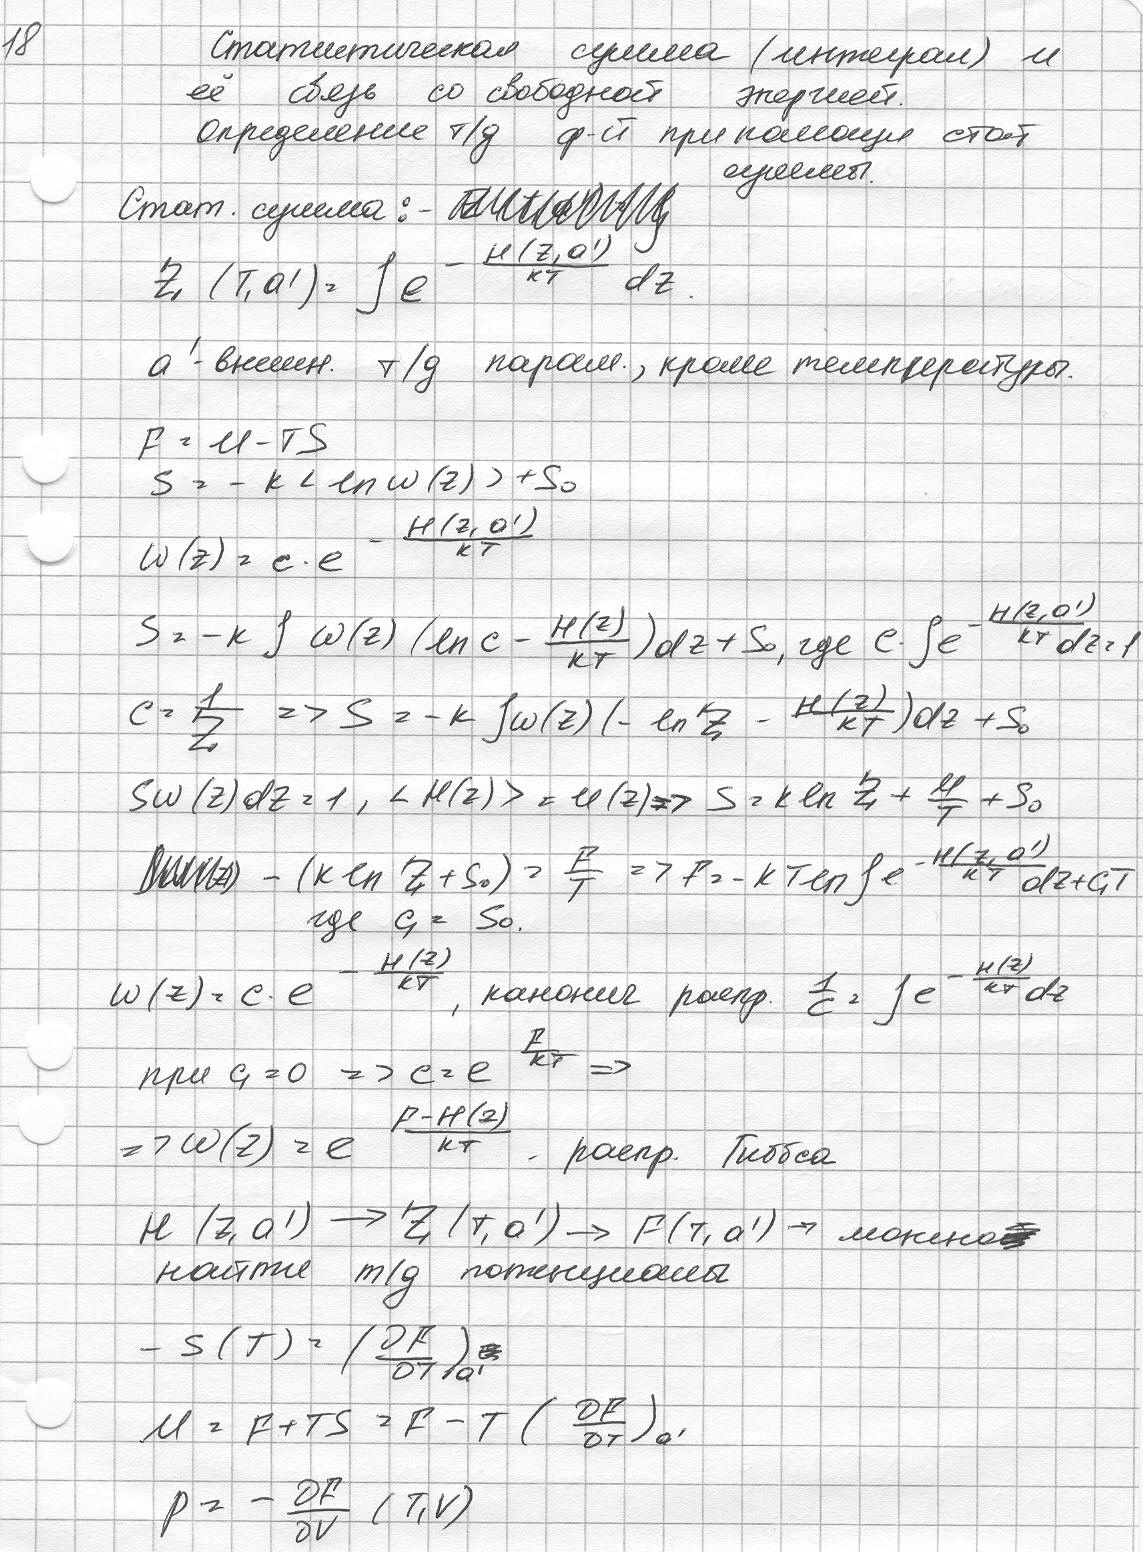 18
Статистическая сумма (интеграл) и
её связь со свободной энергией.
Определение т/д ф-й при помощи стат
суммы.
Стат. сумма: -
Z₁ (T, a') = ∫ e^{- H(Z, a')/кT} dZ.
a' - внешн. т/д парам., кроме температуры.
F = U - TS
S = - к < ln ω(Z) > + S₀
ω(Z) = c · e^{- H(Z, a')/кT}
S = - к ∫ ω(Z) (ln c - H(Z)/кT) dZ + S₀, где c · ∫ e^{- H(Z, a')/кT} dZ = 1
c = 1/Z₁ => S = - к ∫ ω(Z) (- ln Z₁ - H(Z)/кT) dZ + S₀
∫ ω(Z) dZ = 1, < H(Z) > = U(Z) => S = к ln Z₁ + U/T + S₀
- (к ln Z₁ + S₀) = F/T => F = - кT ln ∫ e^{- H(Z, a')/кT} dZ + C₁T
где C₁ = S₀.
ω(Z) = c · e^{- H(Z)/кT}, канонич распр. 1/c = ∫ e^{- H(Z)/кT} dZ
при C₁ = 0 => c = e^{F/кT} =>
=> ω(Z) = e^{(F - H(Z))/кT} - распр. Гиббса
H (Z, a') → Z₁ (T, a') → F (T, a') → можно
найти т/д потенциалы
- S (T) = (∂F/∂T)_{a'}
U = F + TS = F - T (∂F/∂T)_{a'}
p = - ∂F/∂V (T, V)